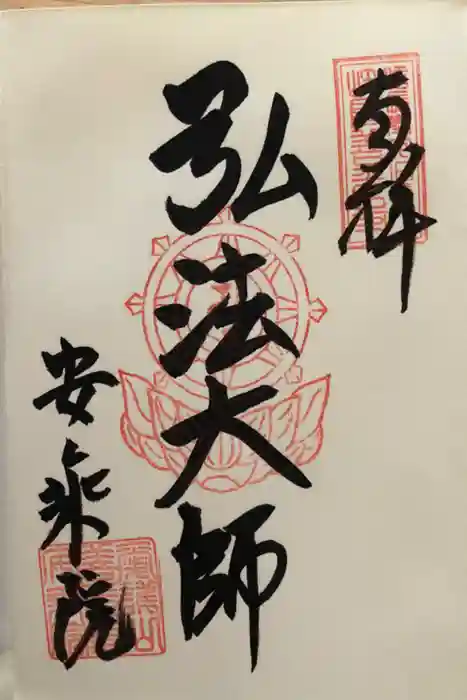 奉拝
弘法大師
安楽院